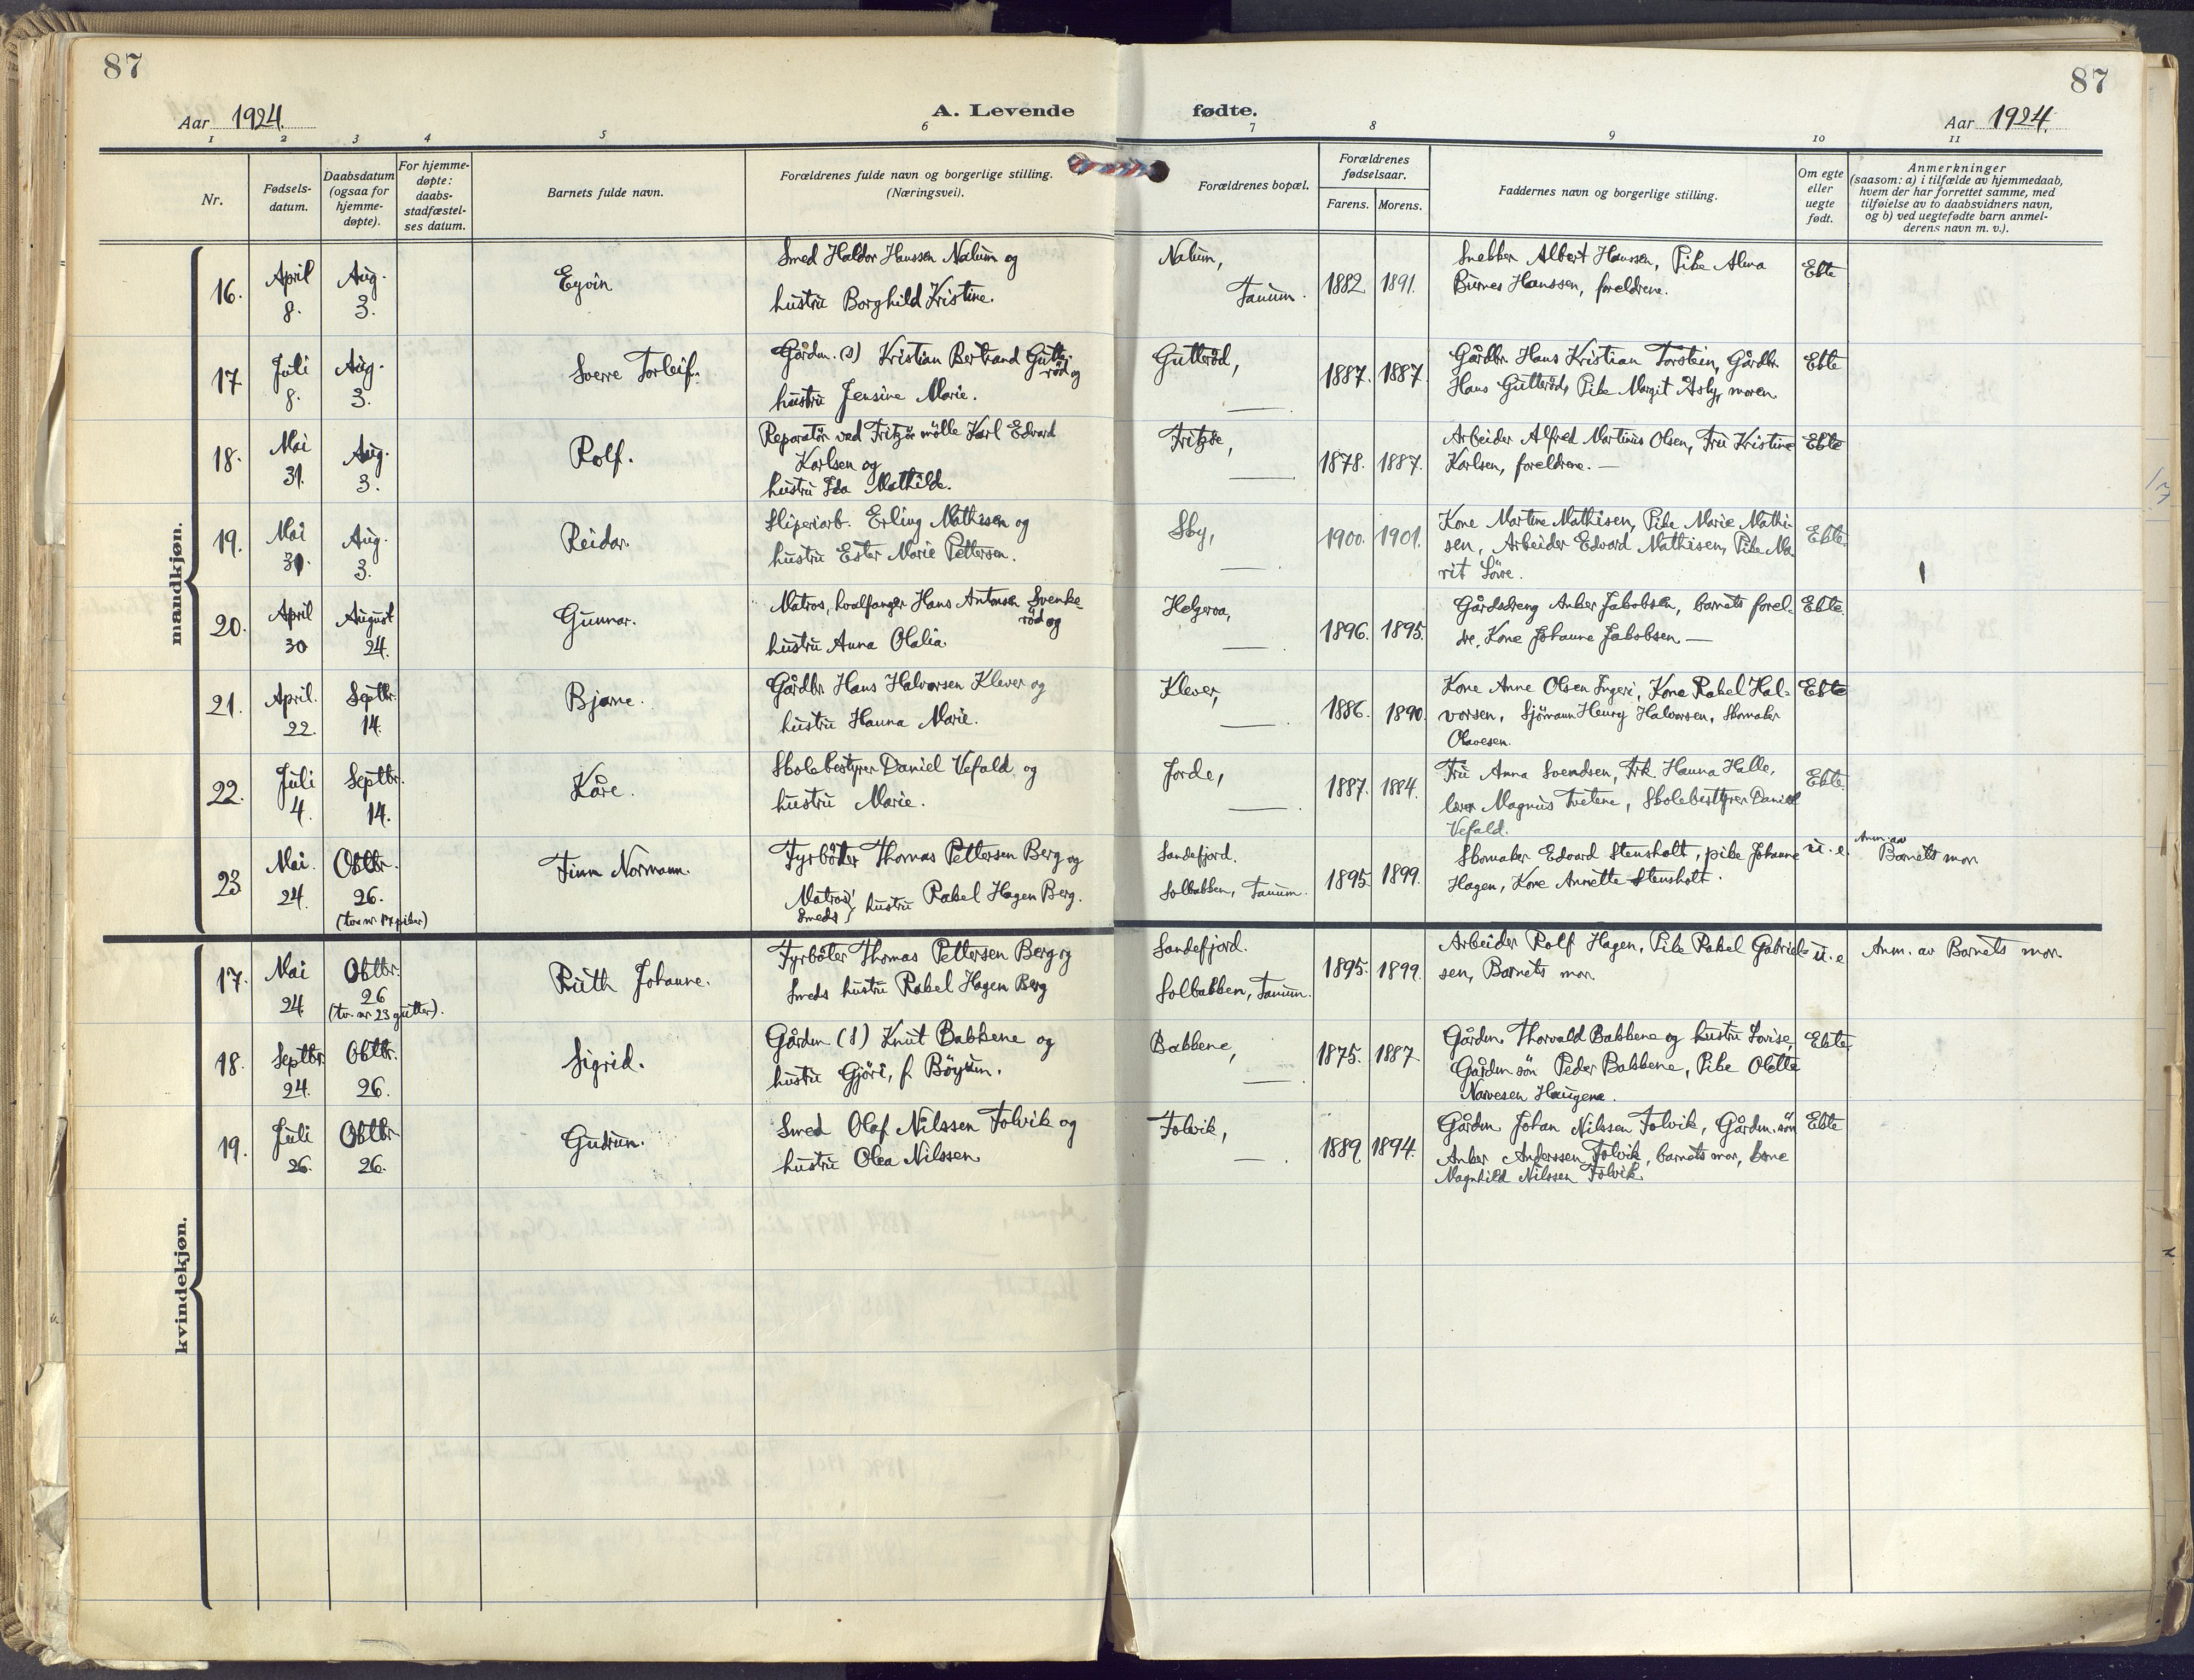 87
87
Aar 1924.
A. Levende fødte.
Aar 1924.
1 2 3 4 5 6 7 8 9 10 11
Nr.
Fødsels-
datum.
Daabsdatum
(ogsaa for
hjemme-
døpte).
For hjemme-
døpte:
daabs-
stadfæstel-
ses datum.
Barnets fulde navn.
Forældrenes fulde navn og borgerlige stilling.
(Næringsvei).
Forældrenes bopæl.
Forældrenes
fødselsaar.
Farens. Morens.
Faddernes navn og borgerlige stilling.
Om egte
eller
uegte
født.
Anmerkninger
(saasom: a) i tilfælde av hjemmedaab,
hvem der har forrettet samme, med
tilføielse av to daabsvidners navn,
og b) ved uegtefødte barn anmel-
derens navn m. v.).
mandkjøn.
16. April 8. Aug. 3.
Eyvin
Smed Haldor Hanssen Nalum og
hustru Borghild Kristine.
Nalum,
Tanum.
1882 1891.
Snekker Albert Hanssen, Pike Alma
Hanssen, foreldrene.
Ekte
17 Juli 8. Aug. 3.
Sverre Torleif.
Gårdm. (S) Kristian Bertrand Gutte-
rød og
hustru Jensine Marie.
Gutterød,
1887. 1887.
Gårdbr. Hans Kristian Torstein, Gårdbr.
Hans Gutterød, Pike Margit Åsby, moren.
Ekte
18. Mai 31. Aug. 3.
Rolf.
Reparatør ved Fritzøe mølle Karl Edvard
Karlsen og
hustru Ida Mathilde.
Fritzøe,
1878. 1887.
Arbeider Alfred Martinus Olsen, Fru Kristine
Karlsen, foreldrene. —
Ekte
19. Mai Aug. 3.
Reidar.
Sliperiarb. Erling Mathisen og
hustru Ester Marie Pettersen.
Sky,
1900. 1901.
Kone Martine Mathisen, Pike Marie Mathi-
sen, Arbeider Edvard Mathisen, Pike Ma
rit
Ekte.
20. April 30 August 24.
Gunnar.
Matros, hvalfanger Hans Antonsen Svenke-
rød og
hustru Anna Olalia.
Helgeroa,
1896. 1895.
Gårdsdreng Anker Jakobsen, barnets forel-
dre, Kone Johanne Jakobsen —
Ekte.
21. April. 22. Septbr. 14.
Bjarne.
Gårdbr Hans Halvorsen Klever og
hustru Hanna Marie.
Klever,
1886. 1890.
Kone Anne Olsen Ingeri, Kone Rakel Hal-
vorsen, Sjömann Henry Halvorsen, Skomaker
Olavesen.
Ekte
22. Juli 4. Septbr. 14.
Kåre.
Skolebestyrer Daniel Vefald og
hustru Marie.
Jorde,
1887. 1884.
Fru Anna Svendsen, Frk Hanna Halle,
lærer Magnus Tvetene, Skolebestyrer Daniel
Vefald.
Ekte.
23. Mai. 24. Oktbr. 26.
(tv. nr. 17 piker)
Finn Normann.
Fyrbøter Thomas Pettersen Berg og
Matros
Smeds } hustru Rakel Hagen Berg.
Sandefjord.
Solbakken, Tanum.
1895 1899.
Skomaker Edvard Stensholt, pike Johanne
Hagen, Kone Annette Stensholt.
u. e.
Anm. av
Barnets mor
kvindekjøn.
17. Mai 24. Oktbr. 26
(tv. nr 23 gutter).
Ruth Johanne.
Fyrbøter Thomas Pettersen Berg og
Smeds hustru Rakel Hagen Berg
Sandefjord.
Solbakken, Tanum.
1895. 1899.
Arbeider Rolf Hagen, Pike Rakel Gabriel-
sen, Barnets mor.
u. e
Anm. av Barnets mor.
18. Septbr. 24. Oktbr. 26.
Sigrid.
Gårdm (S) Knut Bakkene og
hustru Gjöri, f. Böyum.
Bakkene,
1875. 1887
Gårdm. Thorvald Bakkene og hustru Lovise,
Gårdm sön Peder Bakkene, Pike Olette
Narvesen Haugene.
Ekte
19. Juli 26. Oktbr. 26.
Gudrun.
Smed Olaf Nilssen Folvik og
hustru Olea Nilssen
Folvik,
1889 1894.
Gårdm Johan Nilssen Folvik, Gårdm. sön
Anker Anderssen Folvik, barnets mor, kone
Magnhild Nilssen Folvik.
Ekte